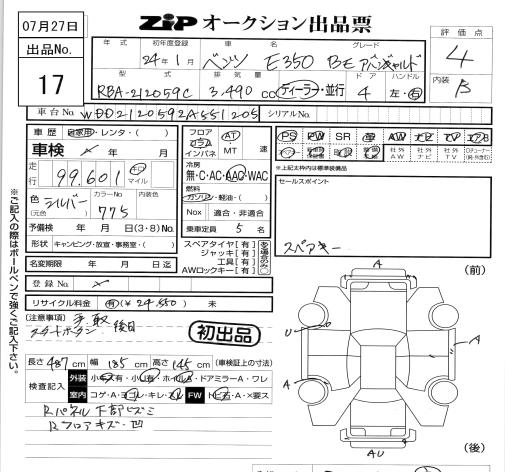 07月27日
出品No.
17
ZiP オークション出品票
評価点
4
内装
B
年式 初年度登録 車名 グレード
24年1月 ベンツ E350 BEアバンギャルド
型式 排気量 ドア ハンドル
RBA-212059C 3,490 cc ディーラー・並行 4 左・右
車台No. WDD2120592A551205 シリアルNo.
車歴 自家用・レンタ・( )
車検 年 月
走行 99,601 km マイル
色 シルバー (元色) カラーNo 775
予備検 年 月 日(3・8)No.
形状 キャンピング・放送・事務室・( )
名変期限 年 月 日迄
登録No.
リサイクル料金 有(¥24,550) 未
フロア コラム インパネ AT MT 速
冷房
無・C・AC・AAC・WAC
燃料
ガソリン・軽油・( )
Nox 適合・非適合
乗車定員 5 名
スペアタイヤ[有]
ジャッキ[有]
工具[有]
AWロックキー[有]
PS PW SR 革 AW ナビ TV エアB
社外AW 社外ナビ 社外TV
※上記太枠は標準装備品
セールスポイント
スペアキー
[注意事項] 手取
スタートボタン 後日
初出品
長さ 487 cm 幅 185 cm 高さ 145 cm (車検証上の寸法)
検査記入 外装 小キズ有・小凹有・ホイルキズ・ドアミラーA・ワレ
室内 コゲ・A・ヨゴレ・キレ・スレ FW トビ石・A・×要ス
Rパネル下部ヒズミ
Rフロアキズ・凹
(前)
A
U
A
A
AU
(後)
※ご記入の際はボールペンで強くご記入下さい。